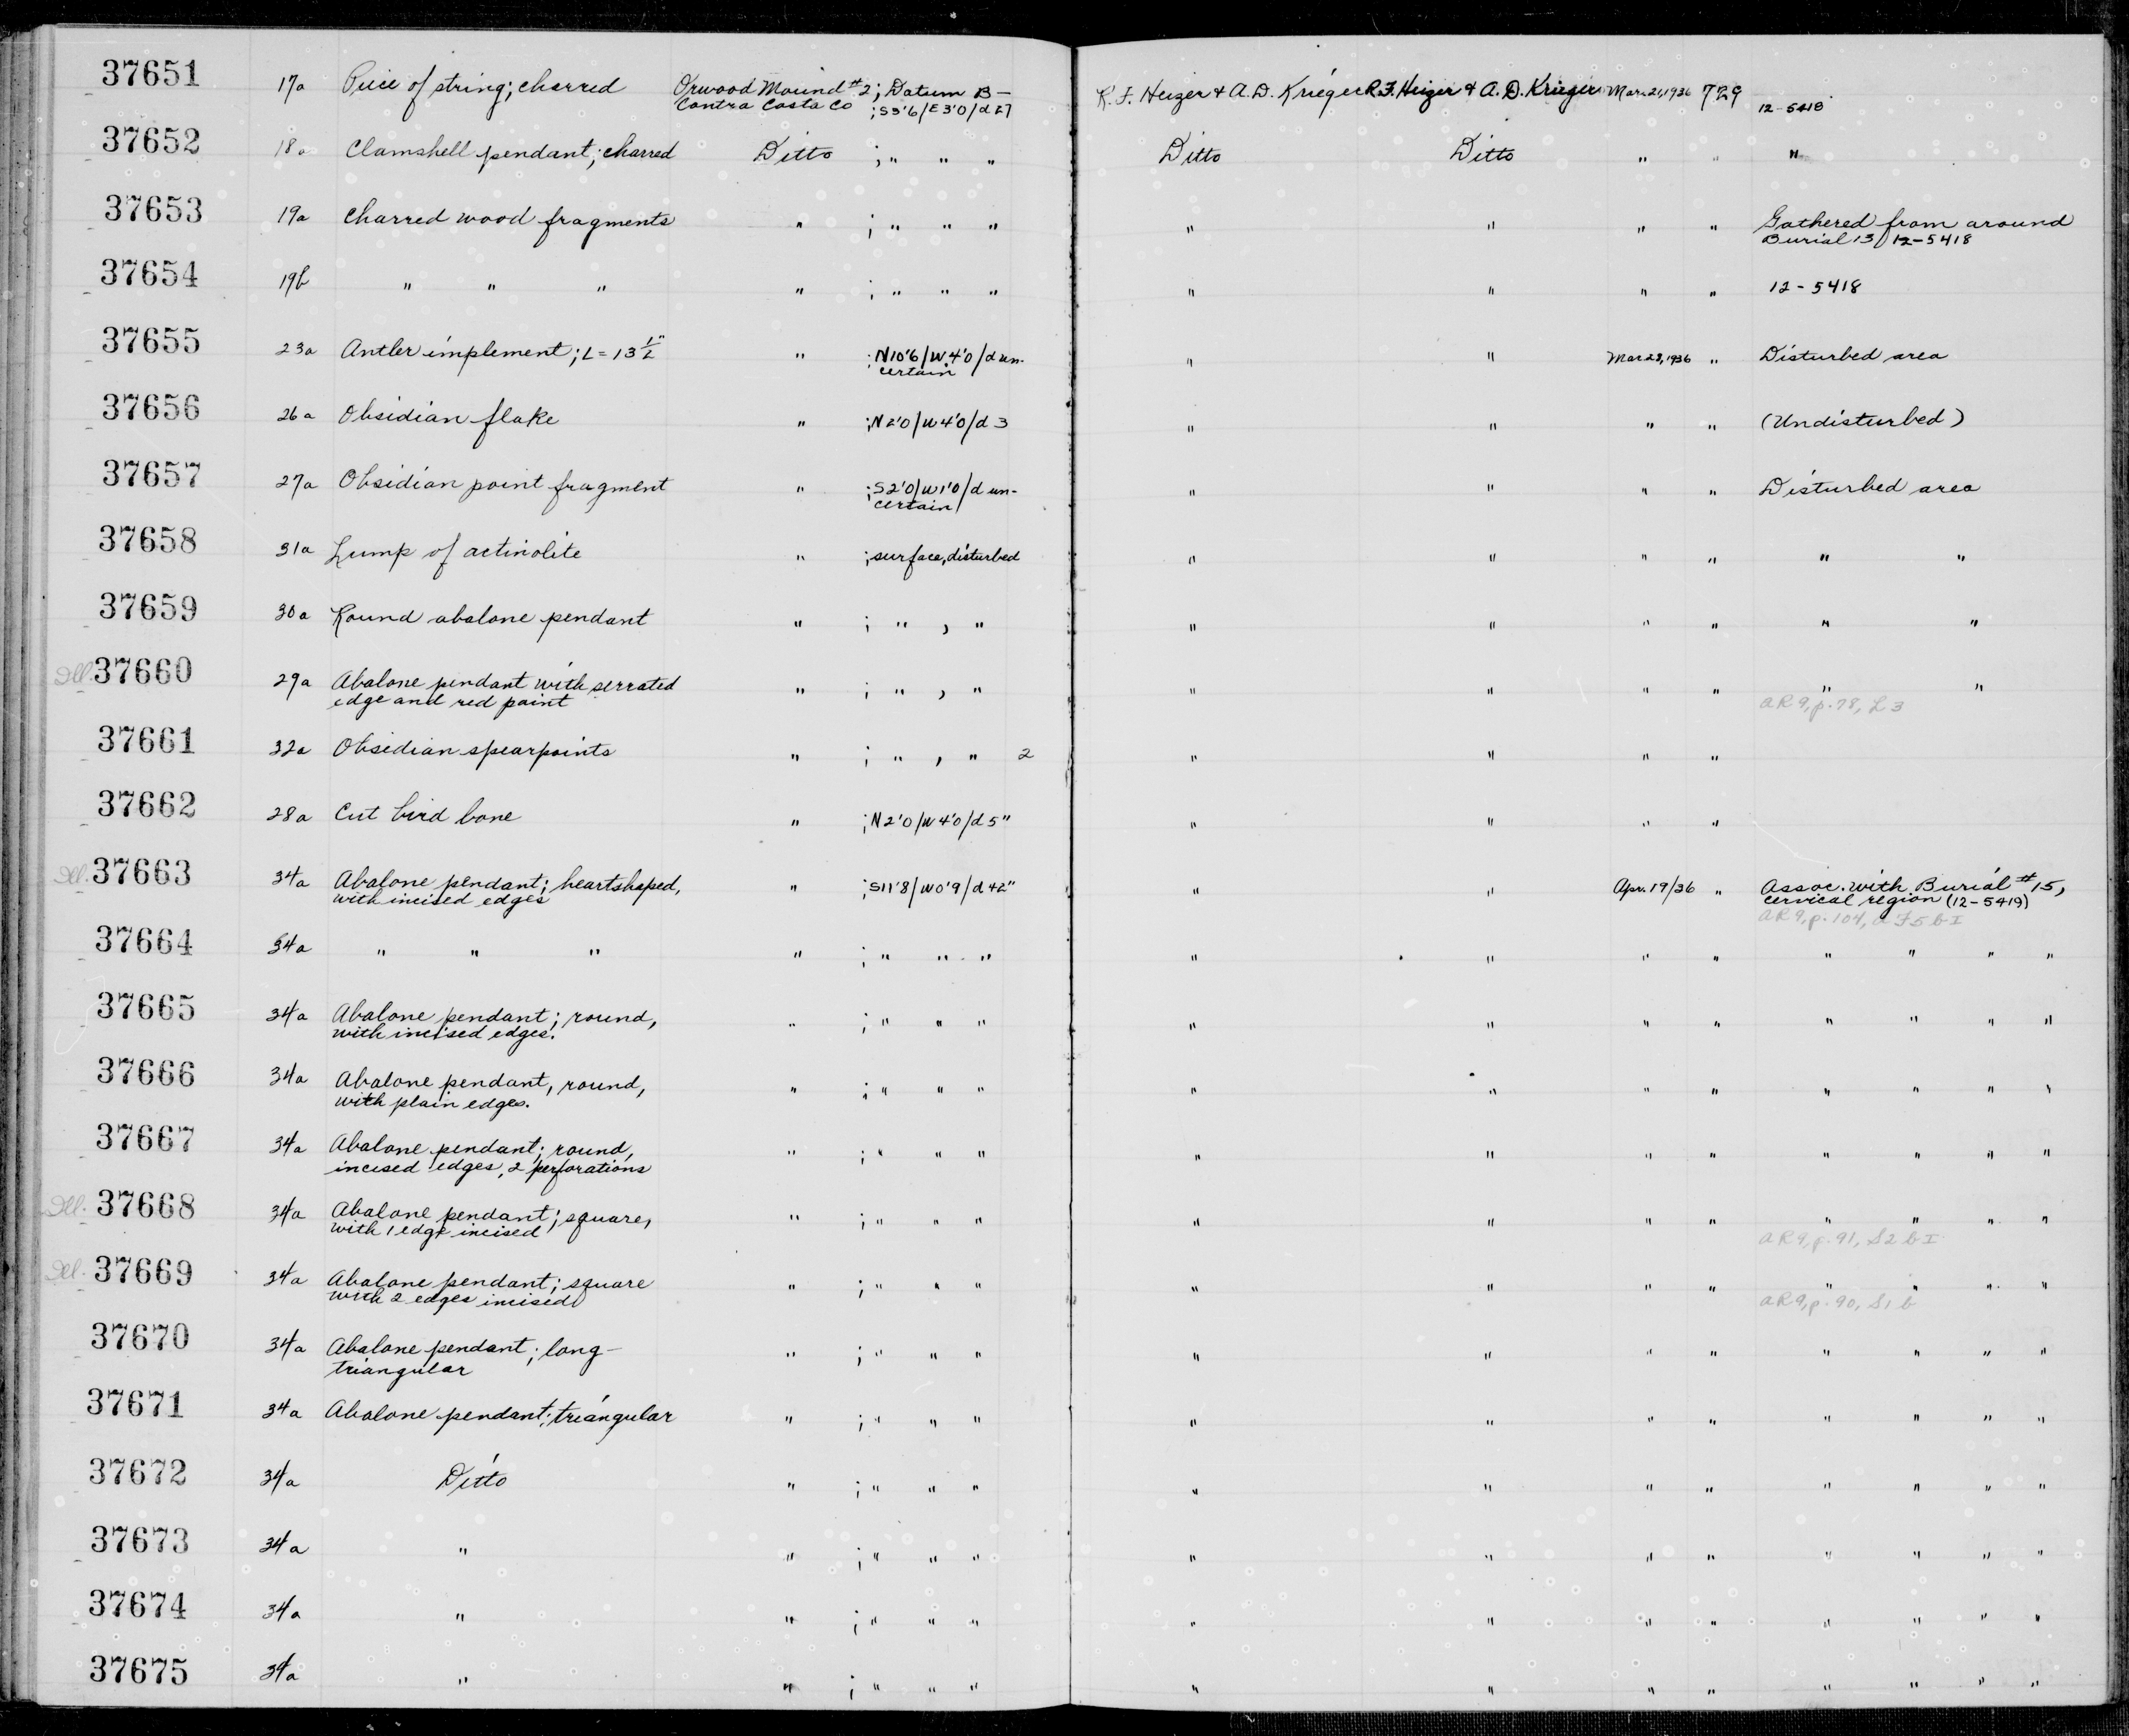 37651 17a Piece of string; charred Orwood Mound #2; Datum B – R.F. Heizer & A.D. Krieger R.F. Heizer & A.D. Krieger Mar. 21, 1936 729
Contra Costa Co ; S5'6/E3'0/d 27 12-5418
37652 18a Clamshell pendant; charred Ditto ; " " " Ditto Ditto " " "
37653 19a Charred wood fragments " ; " " " " " " " Gathered from around
Burial 13/ 12-5418
37654 19b " " " " ; " " " " " " " 12-5418
37655 23a Antler implement; L = 13 1/2" " ; N10'6/W4'0/d un- " " Mar 28, 1936 " Disturbed area
certain
37656 26a Obsidian flake " ; N2'0/W4'0/d 3 " " " " (Undisturbed)
37657 27a Obsidian point fragment " ; S2'0/W1'0/d un- " " " " Disturbed area
certain
37658 31a Lump of actinolite " ; surface, disturbed " " " " " "
37659 30a Round abalone pendant " ; " , " " " " " " "
Ill. 37660 29a Abalone pendant with serrated " ; " , " " " " " " "
edge and red paint AR 9, p. 78, L 3
37661 32a Obsidian spearpoints " ; " , " 2 " " " "
37662 28a Cut bird bone " ; N2'0/W4'0/d 5" " " " "
Ill. 37663 34a Abalone pendant; heartshaped, " ; S11'8/W0'9/d 42" " " Apr. 19/36 " Assoc. with Burial #15,
with incised edges cervical region (12-5419)
AR 9, p. 104, F5 b I
37664 34a " " " " ; " " " " " " " " " " "
37665 34a Abalone pendant; round, " ; " " " " " " " " " " "
with incised edges.
37666 34a Abalone pendant, round, " ; " " " " " " " " " " "
with plain edges.
37667 34a Abalone pendant; round, " ; " " " " " " " " " " "
incised edges, 2 perforations
Ill. 37668 34a Abalone pendant; square, " ; " " " " " " " " " " "
with 1 edge incised AR 9, p. 91, S2 b I
Ill. 37669 34a Abalone pendant; square " ; " " " " " " " " " " "
with 2 edges incised AR 9, p. 90, S1 b
37670 34a Abalone pendant; long- " ; " " " " " " " " " " "
triangular
37671 34a Abalone pendant; triangular " ; " " " " " " " " " " "
37672 34a Ditto " ; " " " " " " " " " " "
37673 34a " " ; " " " " " " " " " " "
37674 34a " " ; " " " " " " " " " " "
37675 34a " " ; " " " " " " " " " " "